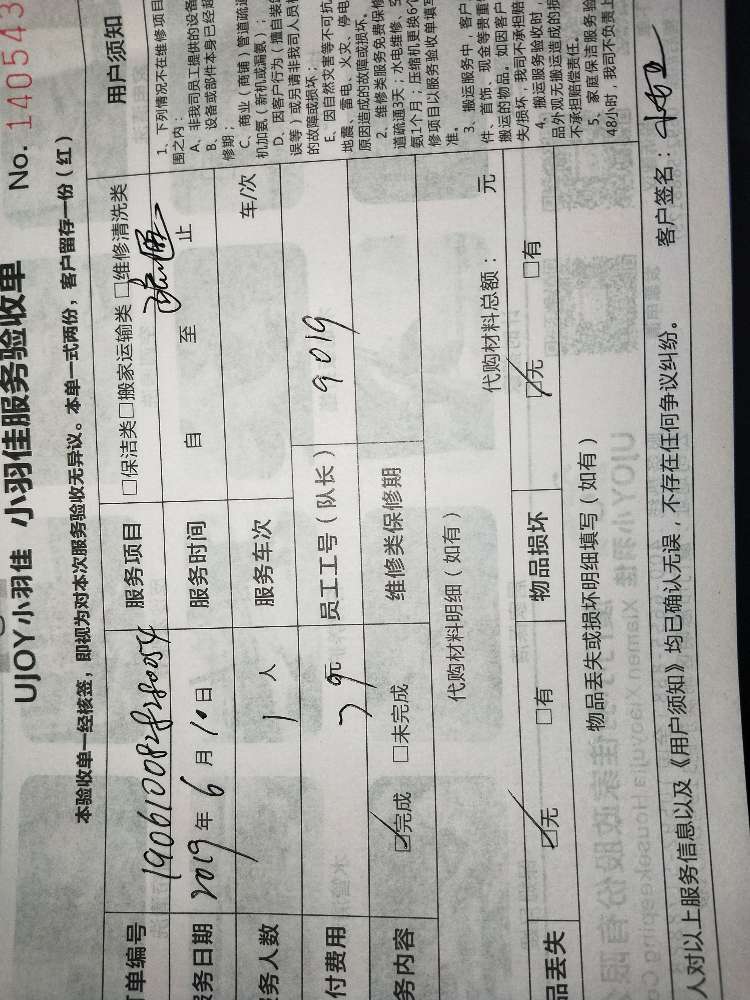 UJOY小羽佳 小羽佳服务验收单
No. 140543
本验收单一经核签，即视为对本次服务验收无异议。本单一式两份，客户留存一份（红）
单编号
服务项目 □保洁类□搬家运输类 □维修清洗类
务日期 2019年 6 月 10日
服务时间 自 至 止
务人数 1 人
服务车次 车/次
付费用 79元
员工工号（队长） 9019
务内容 ☑完成 □未完成
维修类保修期
代购材料明细（如有） 代购材料总额： 元
品丢失 ☑无 □有
物品损坏 ☑无 □有
物品丢失或损坏明细填写（如有）
人对以上服务信息以及《用户须知》均已确认无误，不存在任何争议纠纷。 客户签名：
用户须知
1、下列情况不在维修项目
围之内：
A、非我司员工提供的设备
B、设备或部件本身已经超
修期；
C、商业（商铺）管道疏通
机加氨（新机或漏氨）；
D、因客户行为（擅自装
误等）或另请非我司人员
的故障或损坏；
E、因自然灾害等不可抗
地震、雷电、火灾、停电
原因造成的故障或损坏。
2、维修类服务免费保修
道疏通3天；水电维修、空
氨1个月；压缩机更换6个
修项目以服务验收单填写
准。
3、搬运服务中，客户
件、首饰、现金等贵重
搬运的物品。如因客户
失/损坏，我司不承担赔
4、搬运服务验收时，
品外观无搬运造成的损
不承担赔偿责任。
5、家庭保洁服务验
48小时，我司不负责上